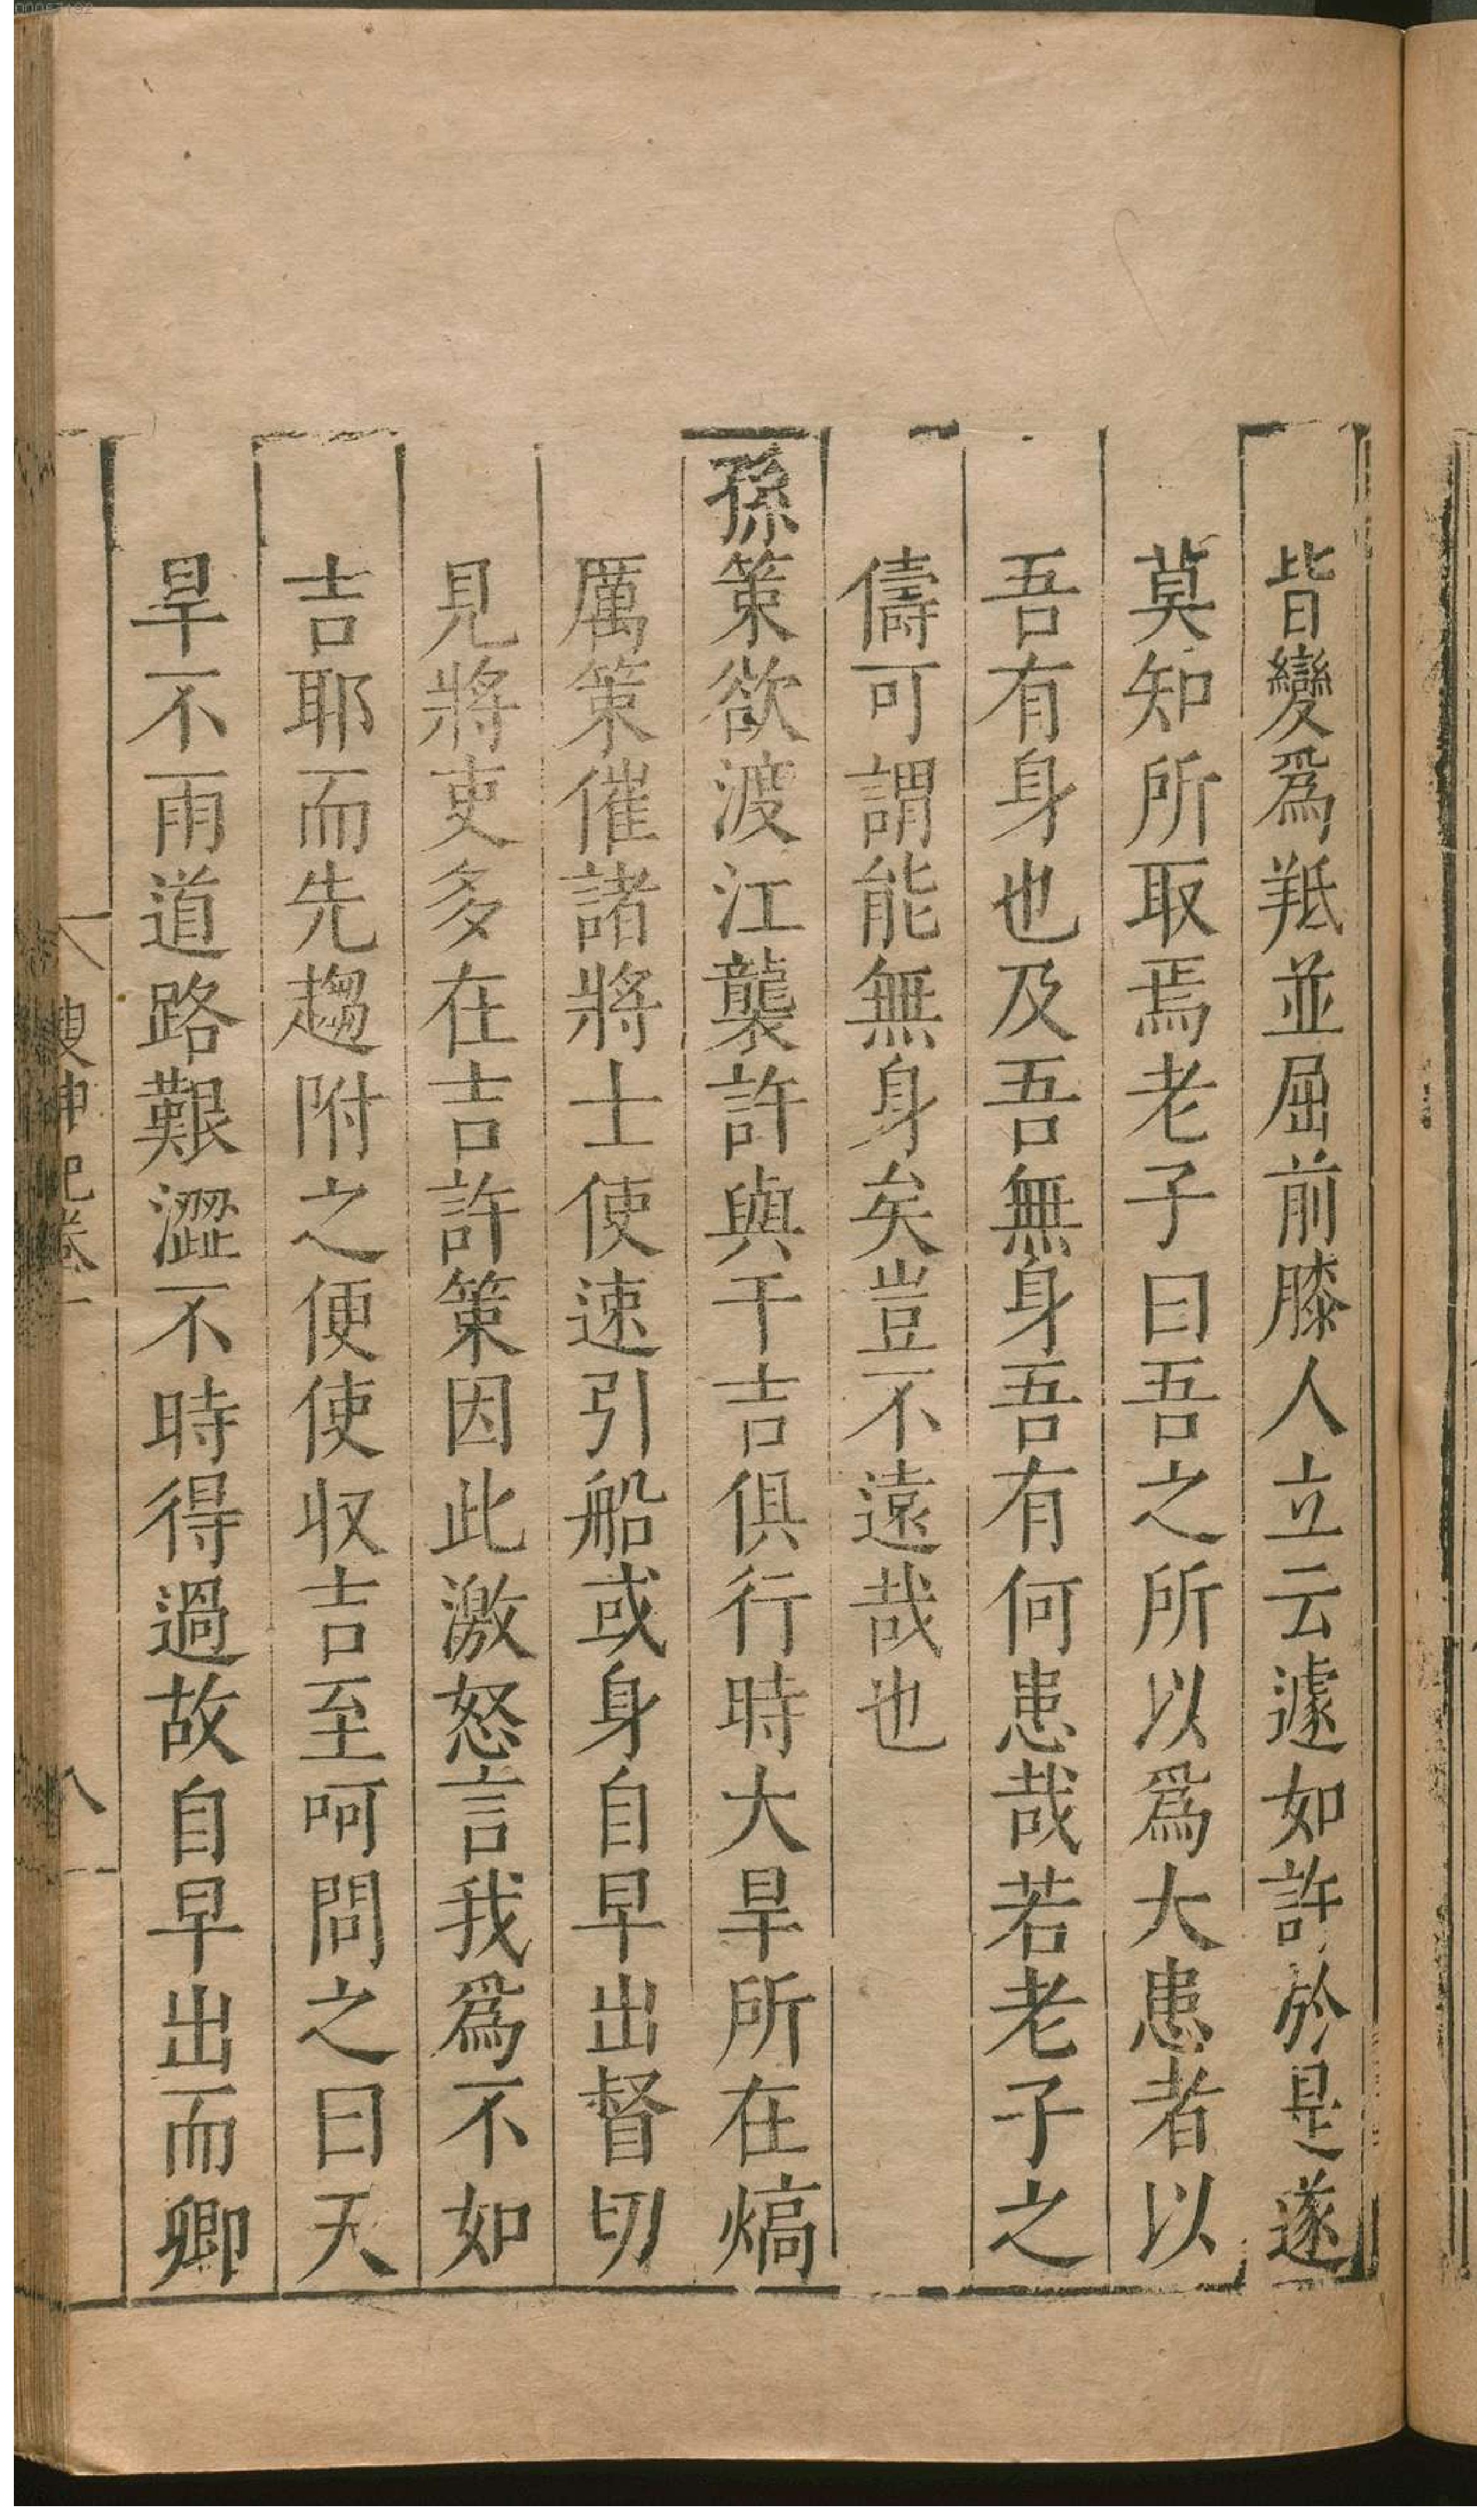 皆變爲羝並屈前膝人立云遽如許於是遂
莫知所取焉老子曰吾之所以爲大患者以
吾有身也及吾無身吾有何患哉若老子之
儔可謂能無身矣豈不遠哉也
孫策欲渡江襲許與干吉俱行時大旱所在熇
厲策催諸將士使速引船或身自早出督切
見將吏多在吉許策因此激怒言我爲不如
吉耶而先趨附之便使収吉至呵問之曰天
旱不雨道路艱澀不時得過故自早出而卿
搜神記卷一
八